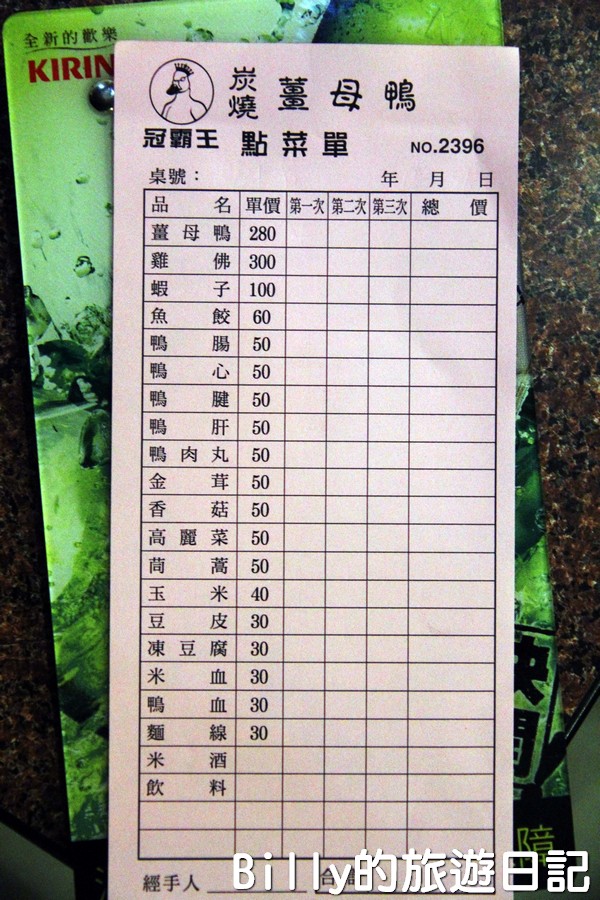 全新的歡樂
KIRIN
炭燒 薑母鴨
冠霸王 點菜單 NO.2396
桌號： 年 月 日
品名 單價 第一次 第二次 第三次 總價
薑母鴨 280
雞佛 300
蝦子 100
魚餃 60
鴨腸 50
鴨心 50
鴨腱 50
鴨肝 50
鴨肉丸 50
金茸 50
香菇 50
高麗菜 50
茼蒿 50
玉米 40
豆皮 30
凍豆腐 30
米血 30
鴨血 30
麵線 30
米酒
飲料
障
經手人
Billy的旅遊日記